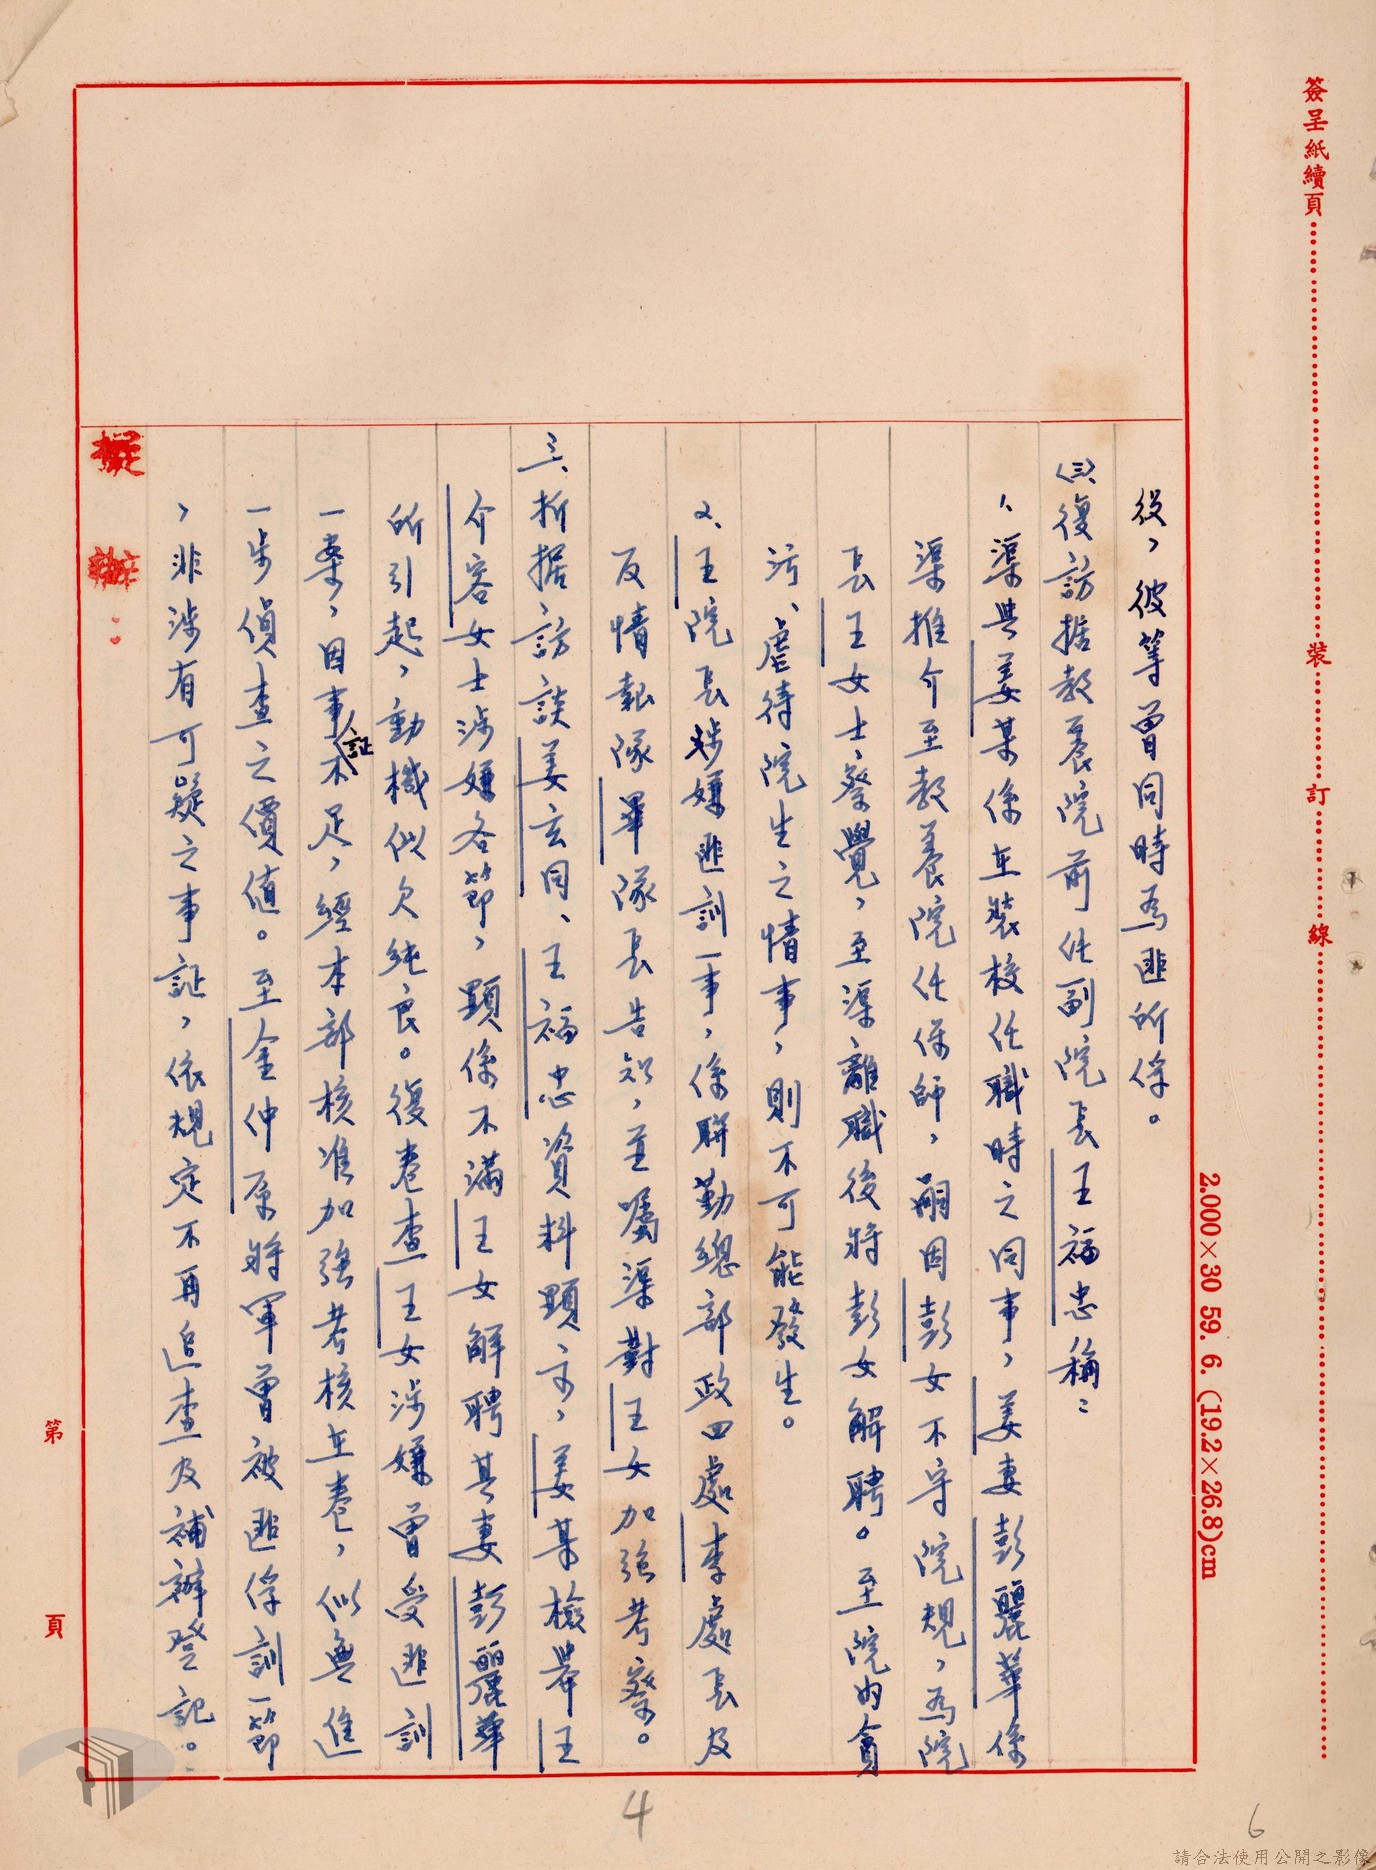 簽呈紙續頁
裝
訂
線
2.000×30 59. 6. (19.2×26.8)cm
役，彼等曾同時為匪所俘。
㈢、復訪據教養院前任副院長王福忠稱：
1、渠與姜某係在裝校任職時之同事，姜妻彭麗華係
渠推介至教養院任保師，嗣因彭女不守院規，為院
長王女士察覺，至渠離職後將彭女解聘。至院內貪
污、虐待院生之情事，則不可能發生。
2、王院長涉嫌匪訓一事，係聯勤總部政四處李處長及
反情報隊畢隊長告知，並囑渠對王女加強考察。
三、析據訪談姜玄同、王福忠資料顯示，姜某檢舉王
介容女士涉嫌各節，顯係不滿王女解聘其妻彭麗華
所引起，動機似欠純良。復卷查王女涉嫌曾受匪訓
一案，因事証不足，經本部核准加強考核在卷，似無進
一步偵查之價值。至金仲原將軍曾被匪俘訓一節
，非涉有可疑之事証，依規定不再追查及補辦登記。
擬辦：
第
頁
4
6
請合法使用公開之影像